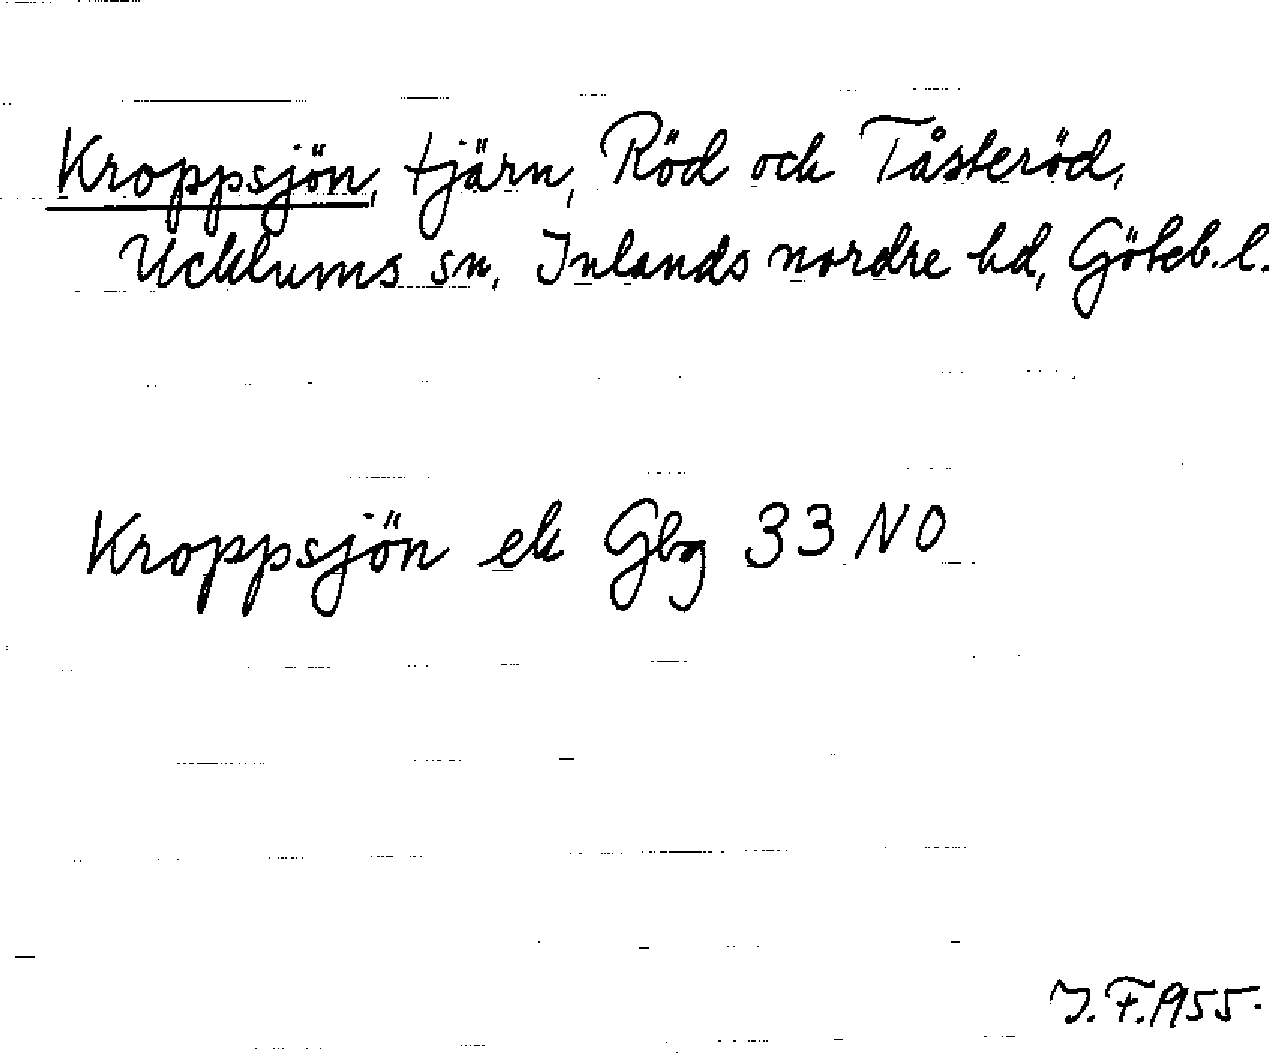 Kroppsjön, tjärn, Röd och Tåsteröd,
Ucklums sn, Inlands nordre hd, Göteb. l.
Kroppsjön ek Gbg 33 NO
J.F. 1955.